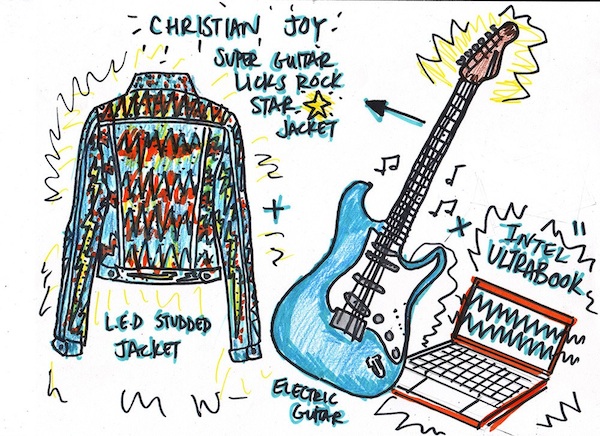 CHRISTIAN JOY
SUPER GUITAR
LICKS ROCK
STAR
JACKET
+
L.E.D STUDDED
JACKET
ELECTRIC
GUITAR
x
INTEL
ULTRABOOK"